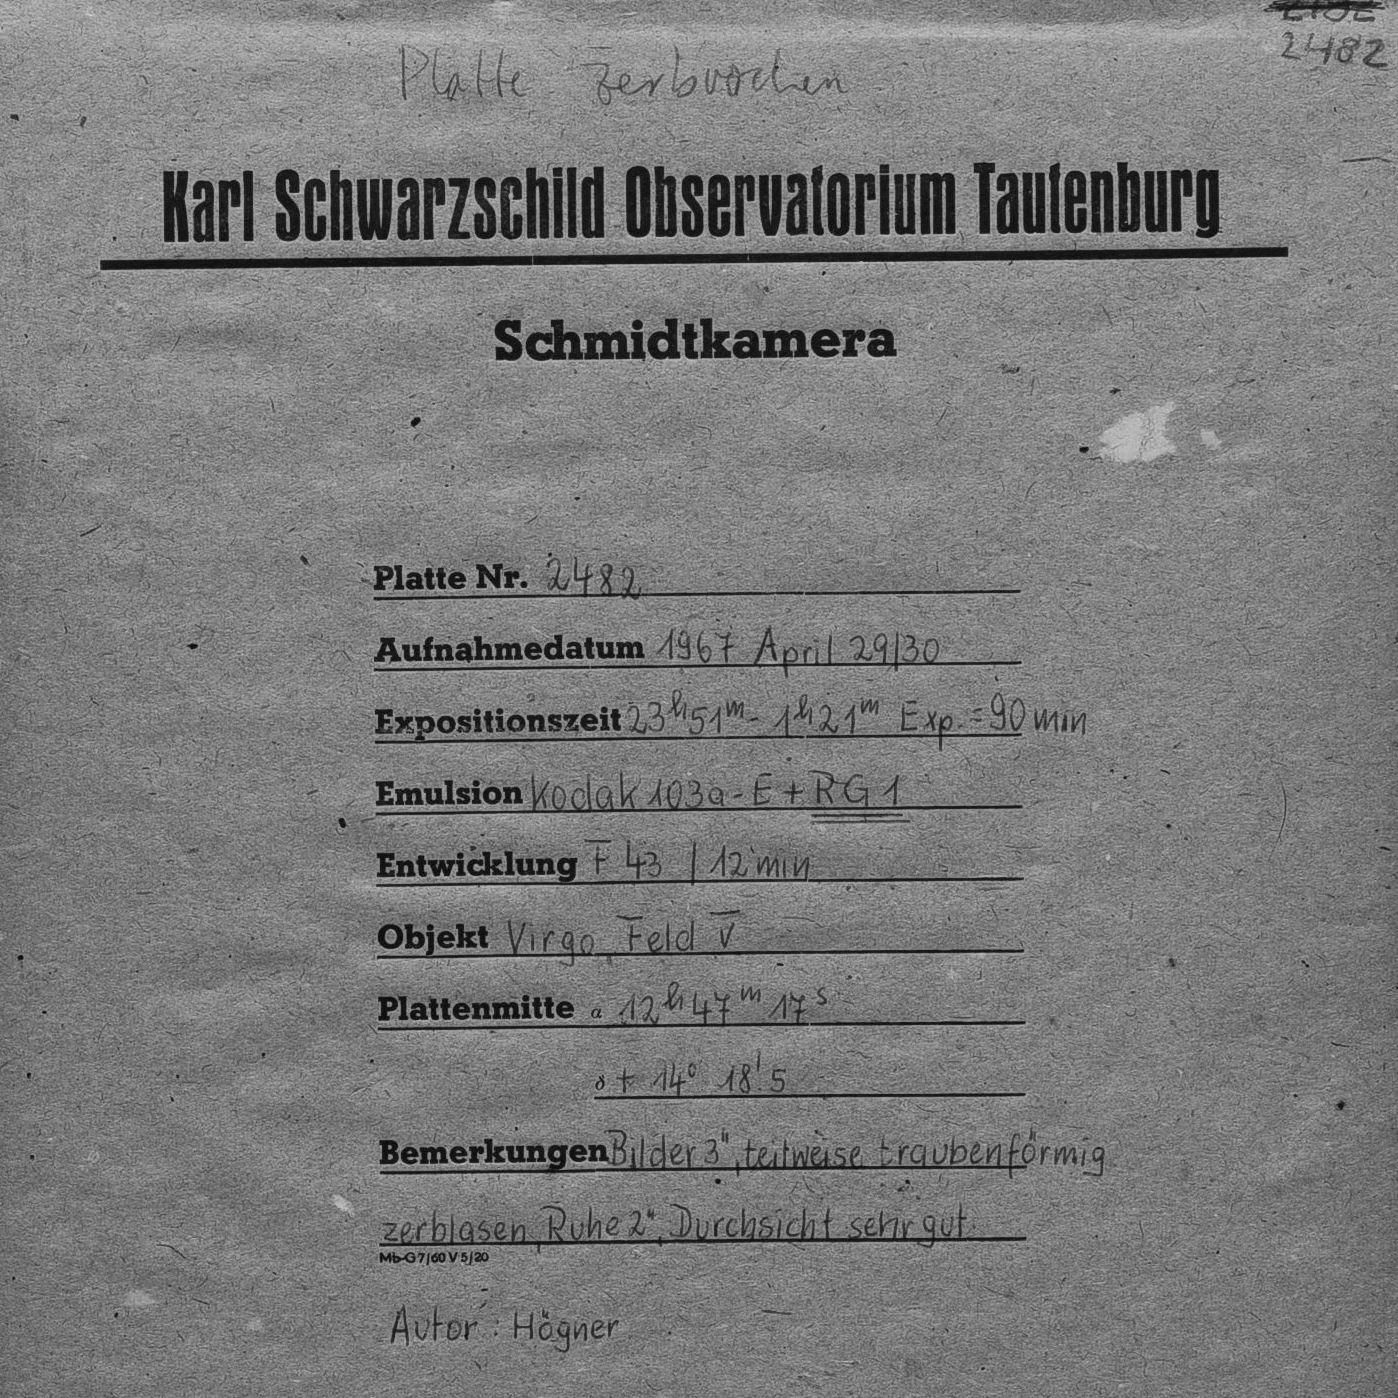 2482
Platte zerbrochen
Karl Schwarzschild Observatorium Tautenburg
Schmidtkamera
Platte Nr. 2482
Aufnahmedatum 1967 April 29/30
Expositionszeit 23h51m - 1h21m Exp. = 90 min
Emulsion Kodak 103a-E + RG 1
Entwicklung F 43 / 12 min
Objekt Virgo Feld V
Plattenmitte α 12h 47m 17s
δ + 14° 18!5
Bemerkungen Bilder 3", teilweise traubenförmig
zerblasen, Ruhe 2", Durchsicht sehr gut.
Mb-G 7/60 V 5/20
Autor: Högner